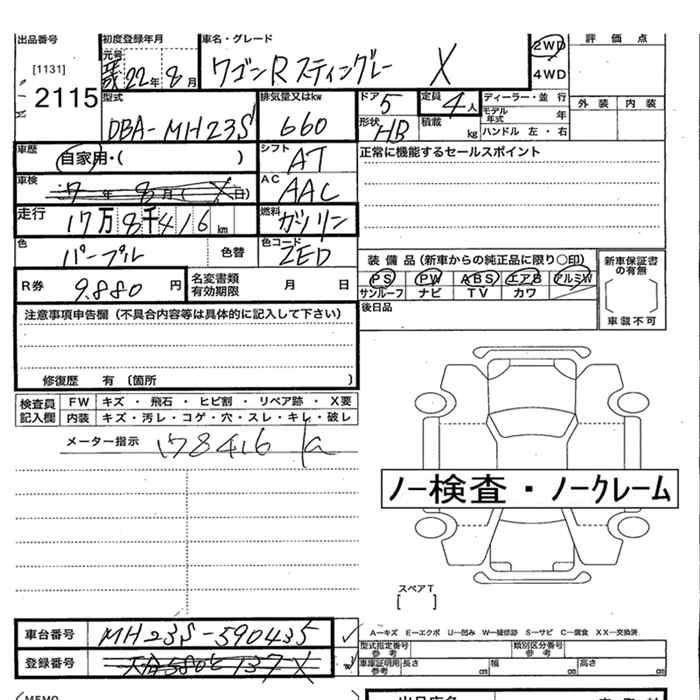 出品番号 初度登録年月 車名・グレード 評価点
元号
[1131] 22年 8月 ワゴンR スティングレー X 2WD
4WD
2115 型式 排気量又はkw ドア 5 定員 4人 ディーラー・並行 外装 内装
モデル年式 年
DBA-MH23S 660 形状 HB 積載 kg ハンドル 左・右
車歴 自家用・( ) シフト AT 正常に機能するセールスポイント
車検 7年 8月 ( 日) AC AAC
走行 17万8千416km 燃料 ガソリン
色 パープル 色替 色コード ZED
装備品(新車からの純正品に限り○印) 新車保証書の有無
R券 9.880円 名変書類有効期限 月 日 PS PW ABS エアB アルミW
サンルーフ ナビ TV カワ
車載不可
注意事項申告欄(不具合内容等は具体的に記入して下さい) 後日品
修復歴 有 〔箇所 〕
検査員記入欄 FW キズ・飛石・ヒビ割・リペア跡・X要
内装 キズ・汚レ・コゲ・穴・スレ・キレ・破レ
メーター指示 178416
ノー検査・ノークレーム
スペアT
[ ]
車台番号 MH23S-590435
A-キズ E-エクボ U-凹み W-補修跡 S-サビ C-腐食 XX-交換済
型式指定番号 類別区分番号
登録番号
車庫証明用参考 長さ cm 幅 cm 高さ cm
MEMO 出品店名